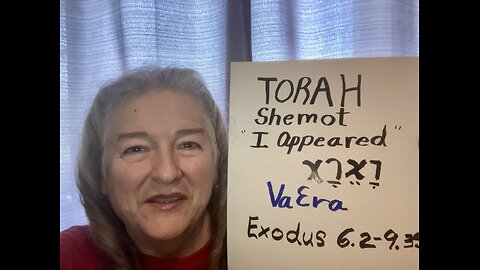 TORAH
Shemot
"I Appeared"
וָאֵרָא
VaEra
Exodus 6.2-9.35